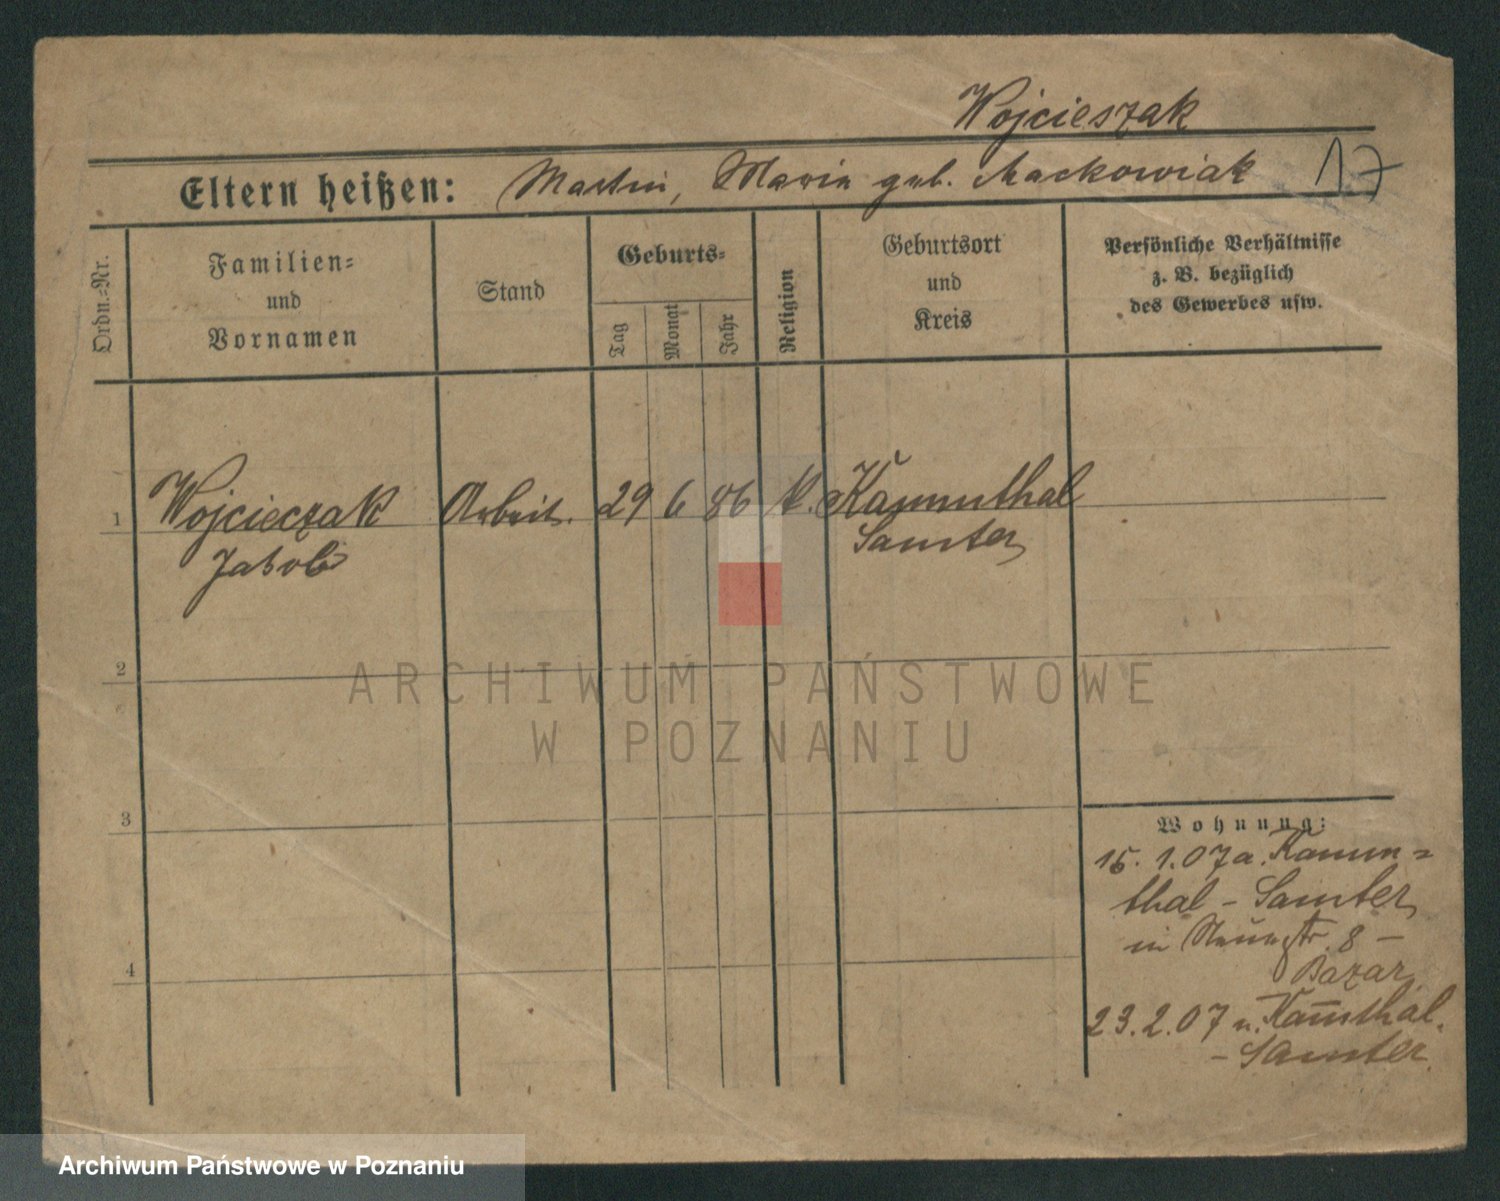 Wojcieszak
Eltern heißen: Martin, Maria geb. Mackowiak 17
Ordn.-Nr.
Familien-
und
Vornamen
Stand
Geburts-
Tag
Monat
Jahr
Religion
Geburtsort
und
Kreis
Persönliche Verhältnisse
z. B. bezüglich
des Gewerbes usw.
1 Wojcieczak Arbeit. 29 6 86 k. Kammthal
Jakob Samter
2
ARCHIWUM PAŃSTWOWE
W POZNANIU
3
Wohnung:
15. 1. 07 a. Kamm-
thal - Samter
in str. 8 -
Bazar
4
23. 2. 07 n. Kam̅thal.
- Samter
Archiwum Państwowe w Poznaniu